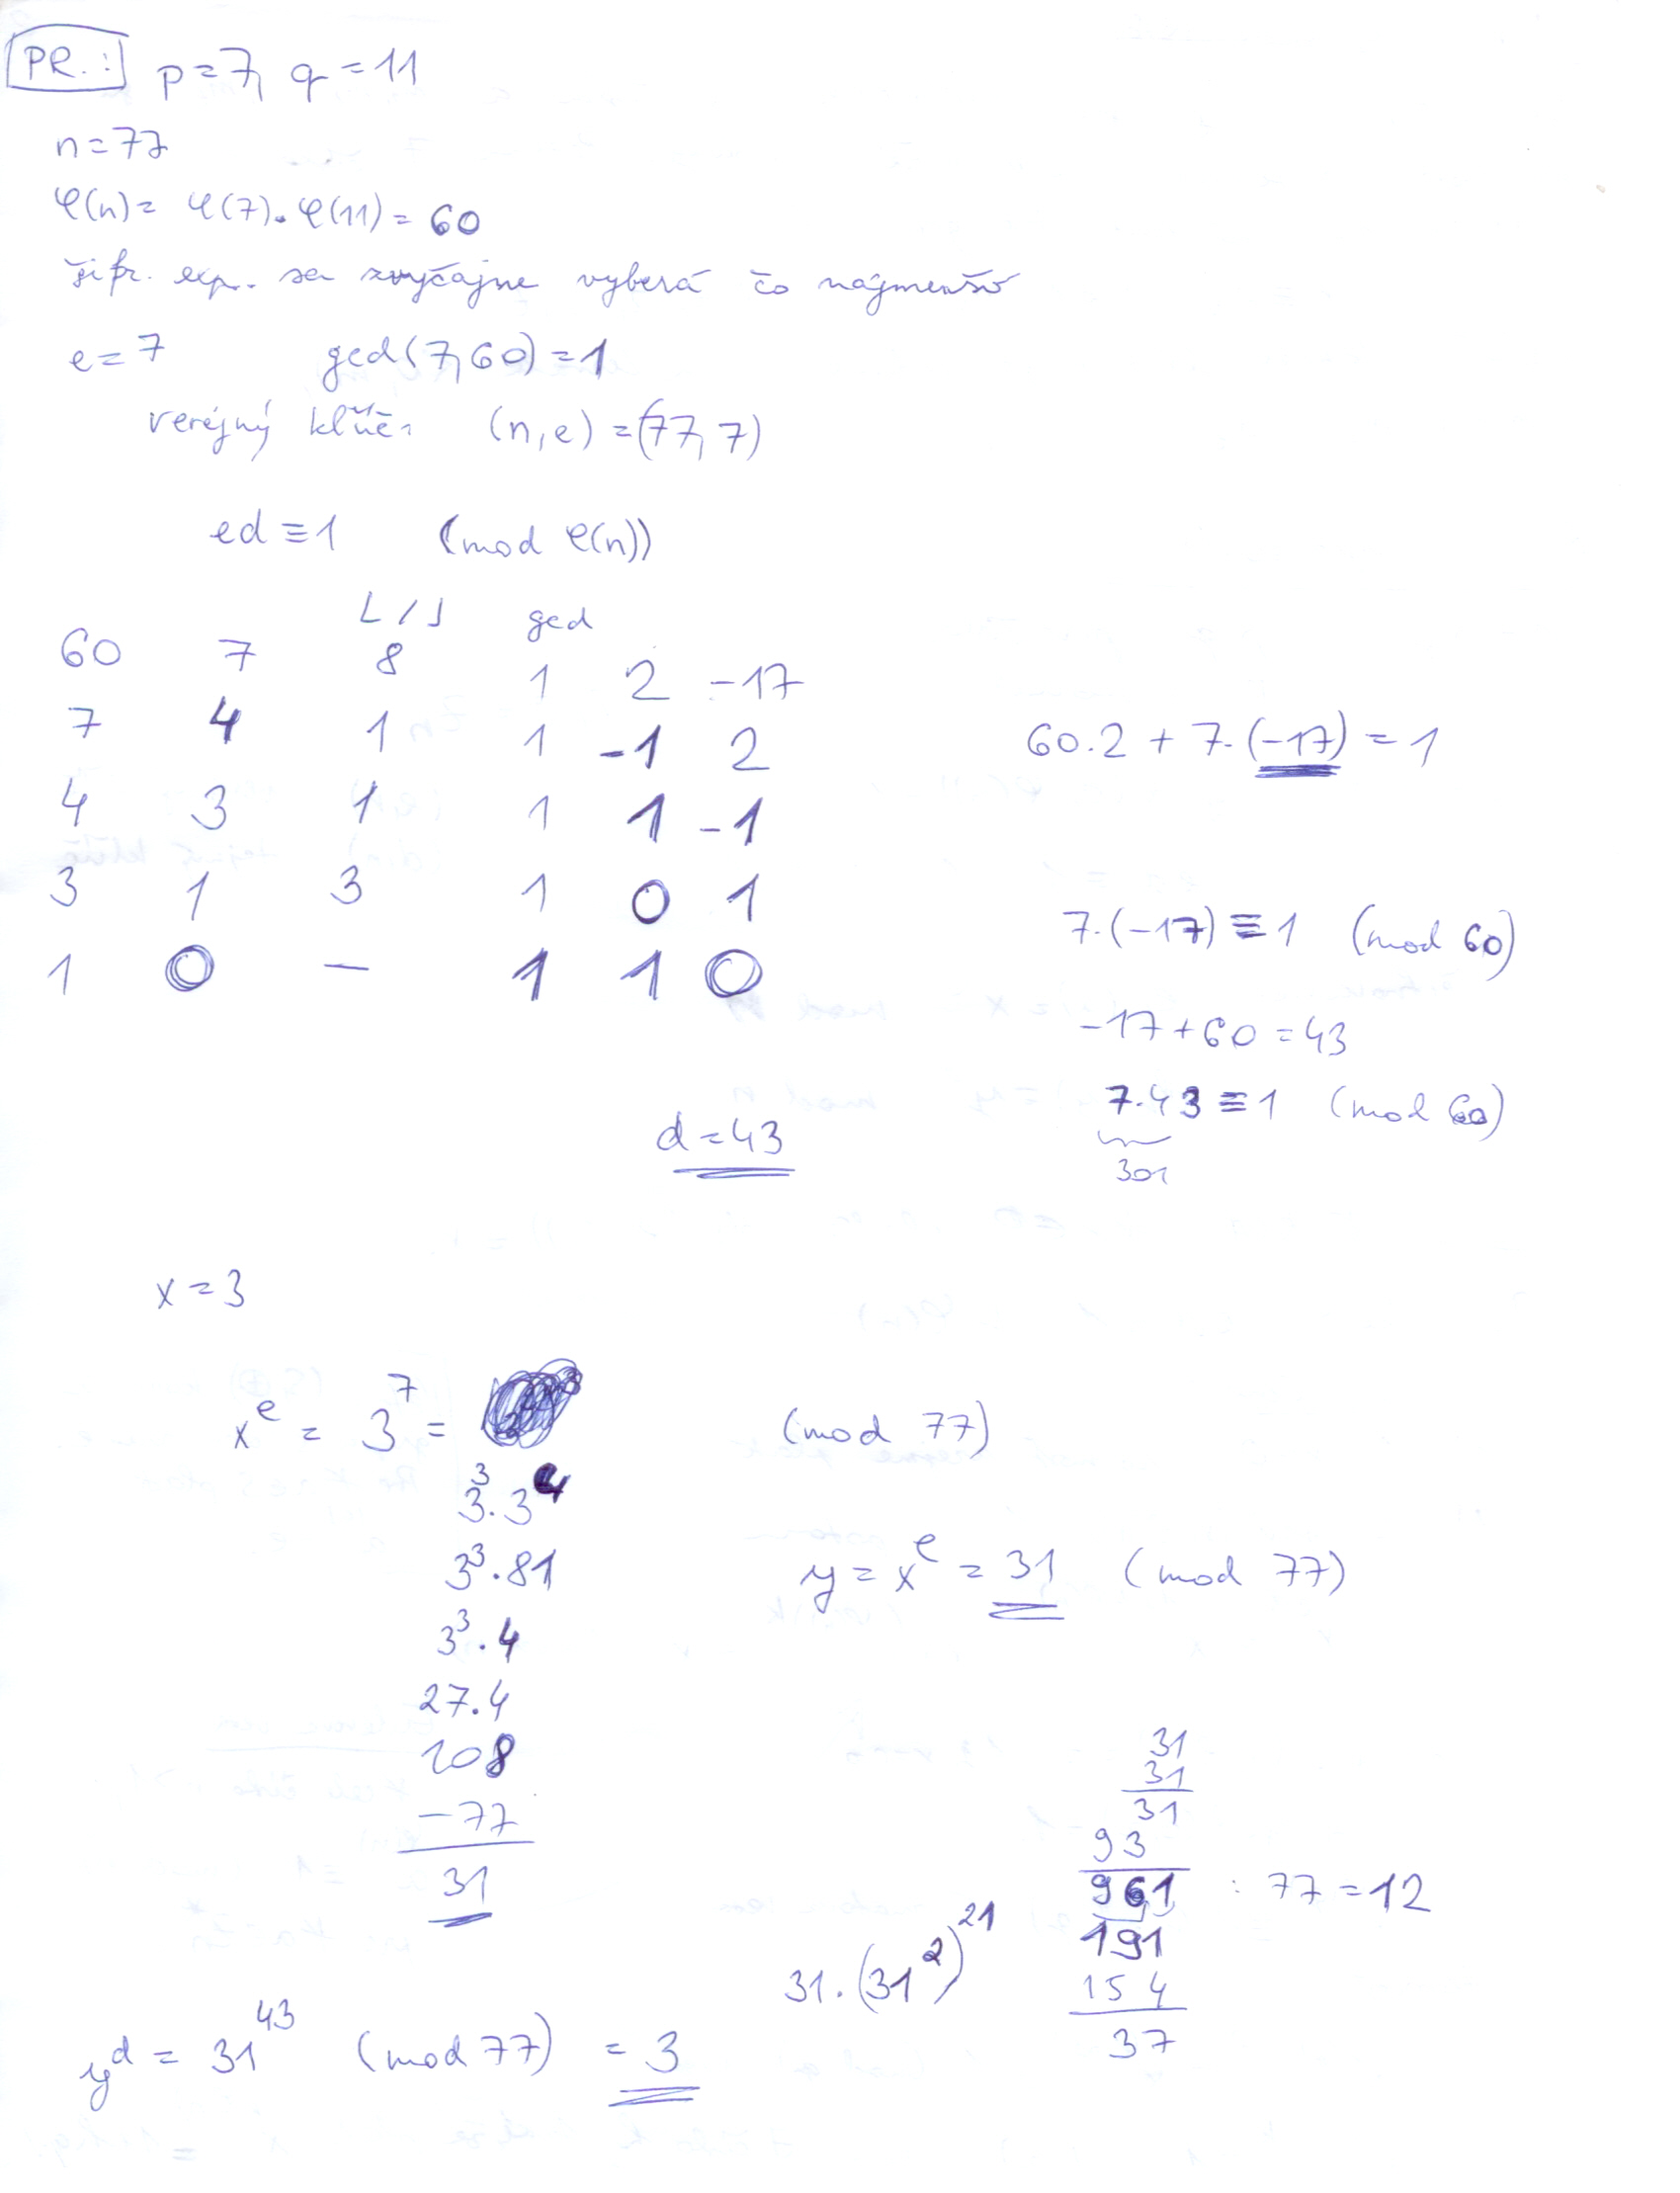 PR.: p=7, q=11
n=77
φ(n)= φ(7).φ(11)=60
šifr. exp. sa zvyčajne vyberá čo najmenší
e=7 gcd(7,60)=1
verejný kľúč: (n,e)=(77,7)
ed≡1 (mod φ(n))
⌊/⌋ gcd
60 7 8 1 2 -17
7 4 1 1 -1 2
60.2 + 7.(-17) = 1
4 3 1 1 1 -1
3 1 3 1 0 1
7.(-17) ≡ 1 (mod 60)
1 0 — 1 1 0
-17+60=43
7.43≡1 (mod 60)
301
d=43
x=3
x^e = 3^7 = (mod 77)
3^3.3^4
3^3.81
y = x^e = 31 (mod 77)
3^3.4
27.4
108
-77
31
31
31
31
93
961 : 77 = 12
191
154
37
31.(31^2)^21
y^d = 31^43 (mod 77) = 3